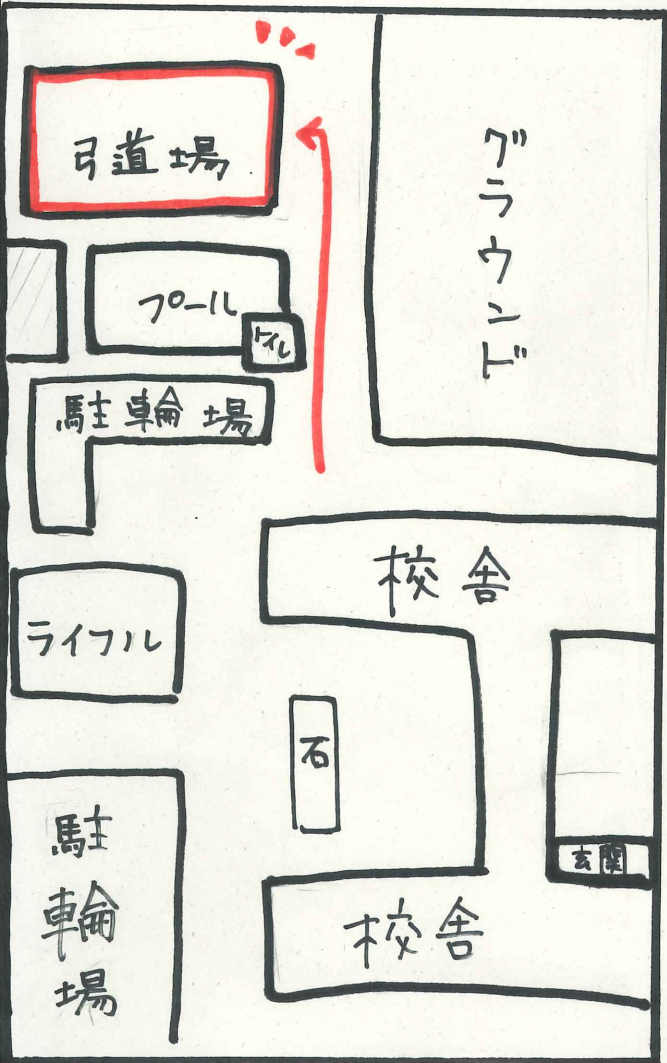 弓道場
グラウンド
プール
トイレ
駐輪場
校舎
ライフル
石
玄関
駐輪場
校舎